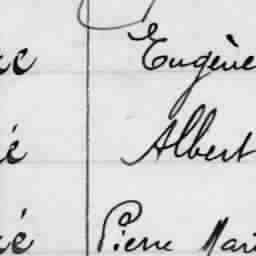 Eugène
Albert
é Pierre Mari